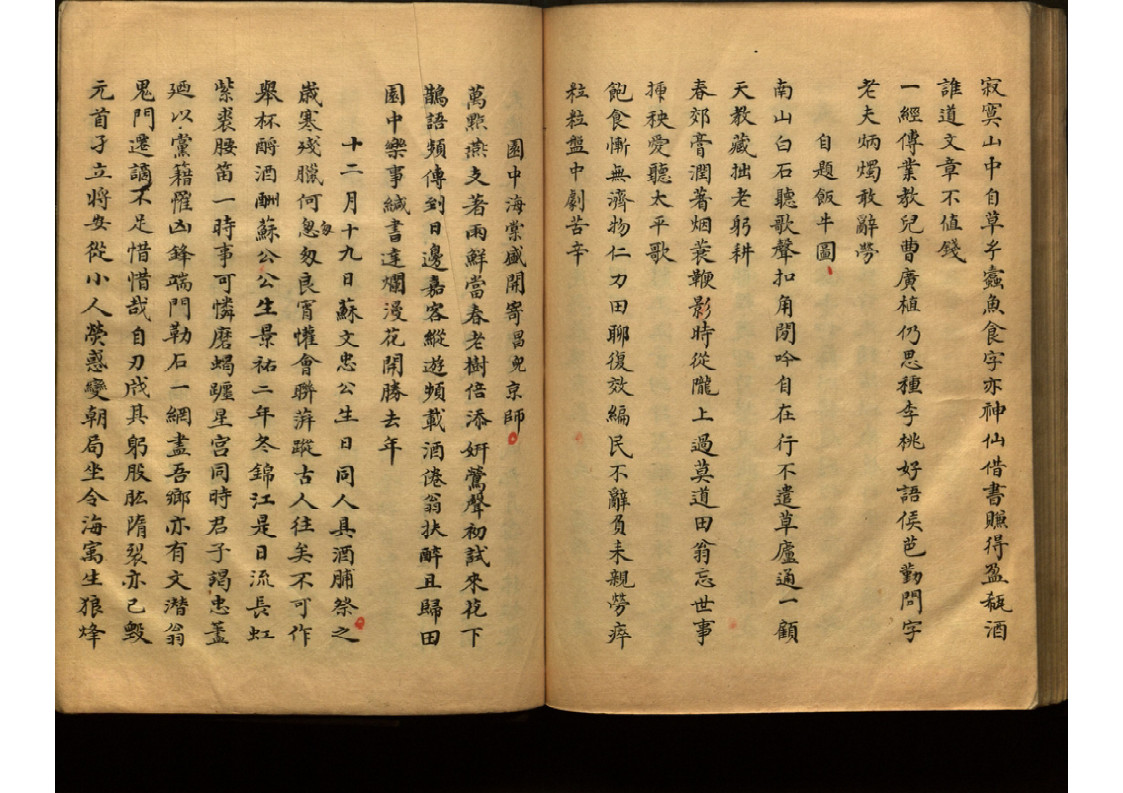 寂寞山中自草乎蠹魚食字亦神仙借書賺得盈瓻酒
誰道文章不值錢
一經傳業教兒曹廣植仍思種李桃好語侯芭勤問字
老夫炳燭敢辭勞
自題飯牛圖
南山白石聽歌聲扣角閒吟自在行不遣草廬通一顧
天教藏拙老躬耕
春郊膏潤著烟蓑鞭影時從隴上過莫道田翁忘世事
揷秧愛聽太平歌
飽食慚無濟物仁刀田聊復效編民不辭負耒親勞瘁
粒粒盤中劇苦辛
園中海棠盛開寄昌兒京師
萬點燕支著雨鮮當春老樹倍添妍鶯聲初試來花下
鵲語頻傳到日邊嘉客縱遊頻載酒倦翁扶醉且歸田
園中樂事緘書達爛漫花開勝去年
十二月十九日蘇文忠公生日同人具酒脯祭之
歲寒殘臘何匆匆良宵懽會聯萍蹤古人往矣不可作
舉杯酹酒酬蘇公公生景祐二年冬錦江是日流長虹
紫裘腰笛一時事可憐磨蝎躔星宮同時君子謁忠藎
廼以黨籍罹凶鋒端門勒石一網盡吾鄉亦有文潛翁
鬼門遷謫不足惜惜哉自刃戕其躬股肱隋裂亦已毀
元首孑立將安從小人熒惑變朝局坐令海寓生狼烽